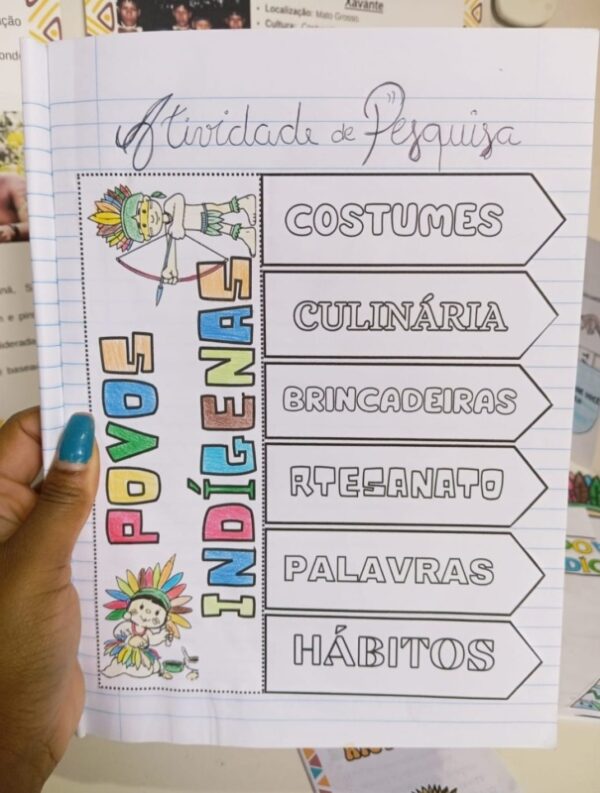 Xavante
• Localização: Mato Grosso.
Atividade de Pesquisa
POVOS
INDÍGENAS
COSTUMES
CULINÁRIA
BRINCADEIRAS
RTESANATO
PALAVRAS
HÁBITOS